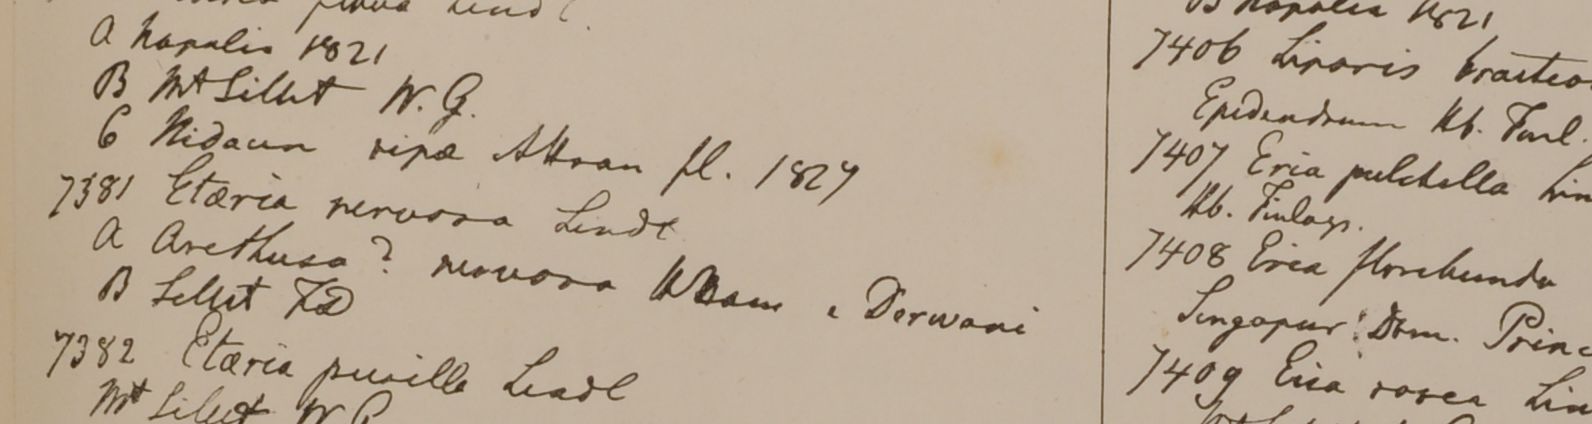 A Napalia 1821
B Mt Sillet W. G.
C Nidaun ripæ Attran fl. 1827
7381 Etæria nervosa Lindl
A Arethusa? nervosa HBHam e Derwani
B Sillet FD
7382 Etæria pusilla Lindl
Mt Sillet W G
B Napalia 1821
7406 Liparis
Epidendrum Hb. Finl.
7407 Eria pulchella Lin
Hb. Finlays.
7408 Eria floribunda
Singapur Dom. Princ
7409 Eria rosea Lin